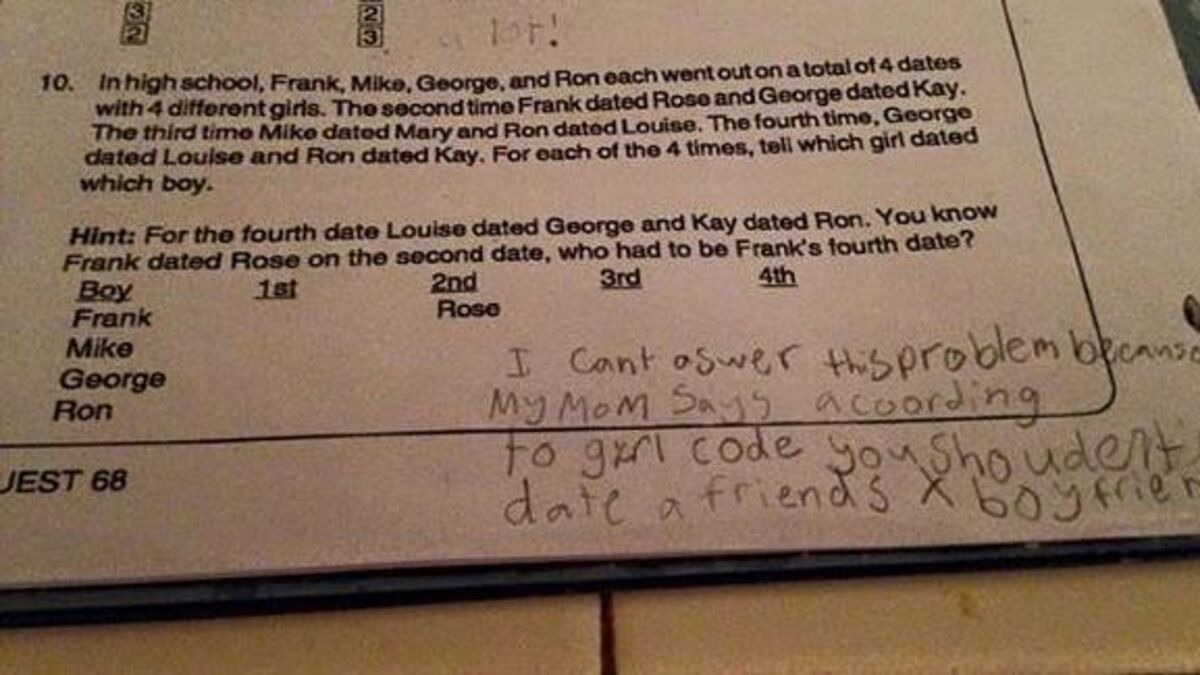 3 2
2 3
a lot!
10. In high school, Frank, Mike, George, and Ron each went out on a total of 4 dates
with 4 different girls. The second time Frank dated Rose and George dated Kay.
The third time Mike dated Mary and Ron dated Louise. The fourth time, George
dated Louise and Ron dated Kay. For each of the 4 times, tell which girl dated
which boy.
Hint: For the fourth date Louise dated George and Kay dated Ron. You know
Frank dated Rose on the second date, who had to be Frank's fourth date?
Boy 1st 2nd 3rd 4th
Frank Rose
Mike
George
Ron
I Cant aswer this problem because
My Mom Says acoording
to girl code you shoudent
date a friends X boyfrien
UEST 68